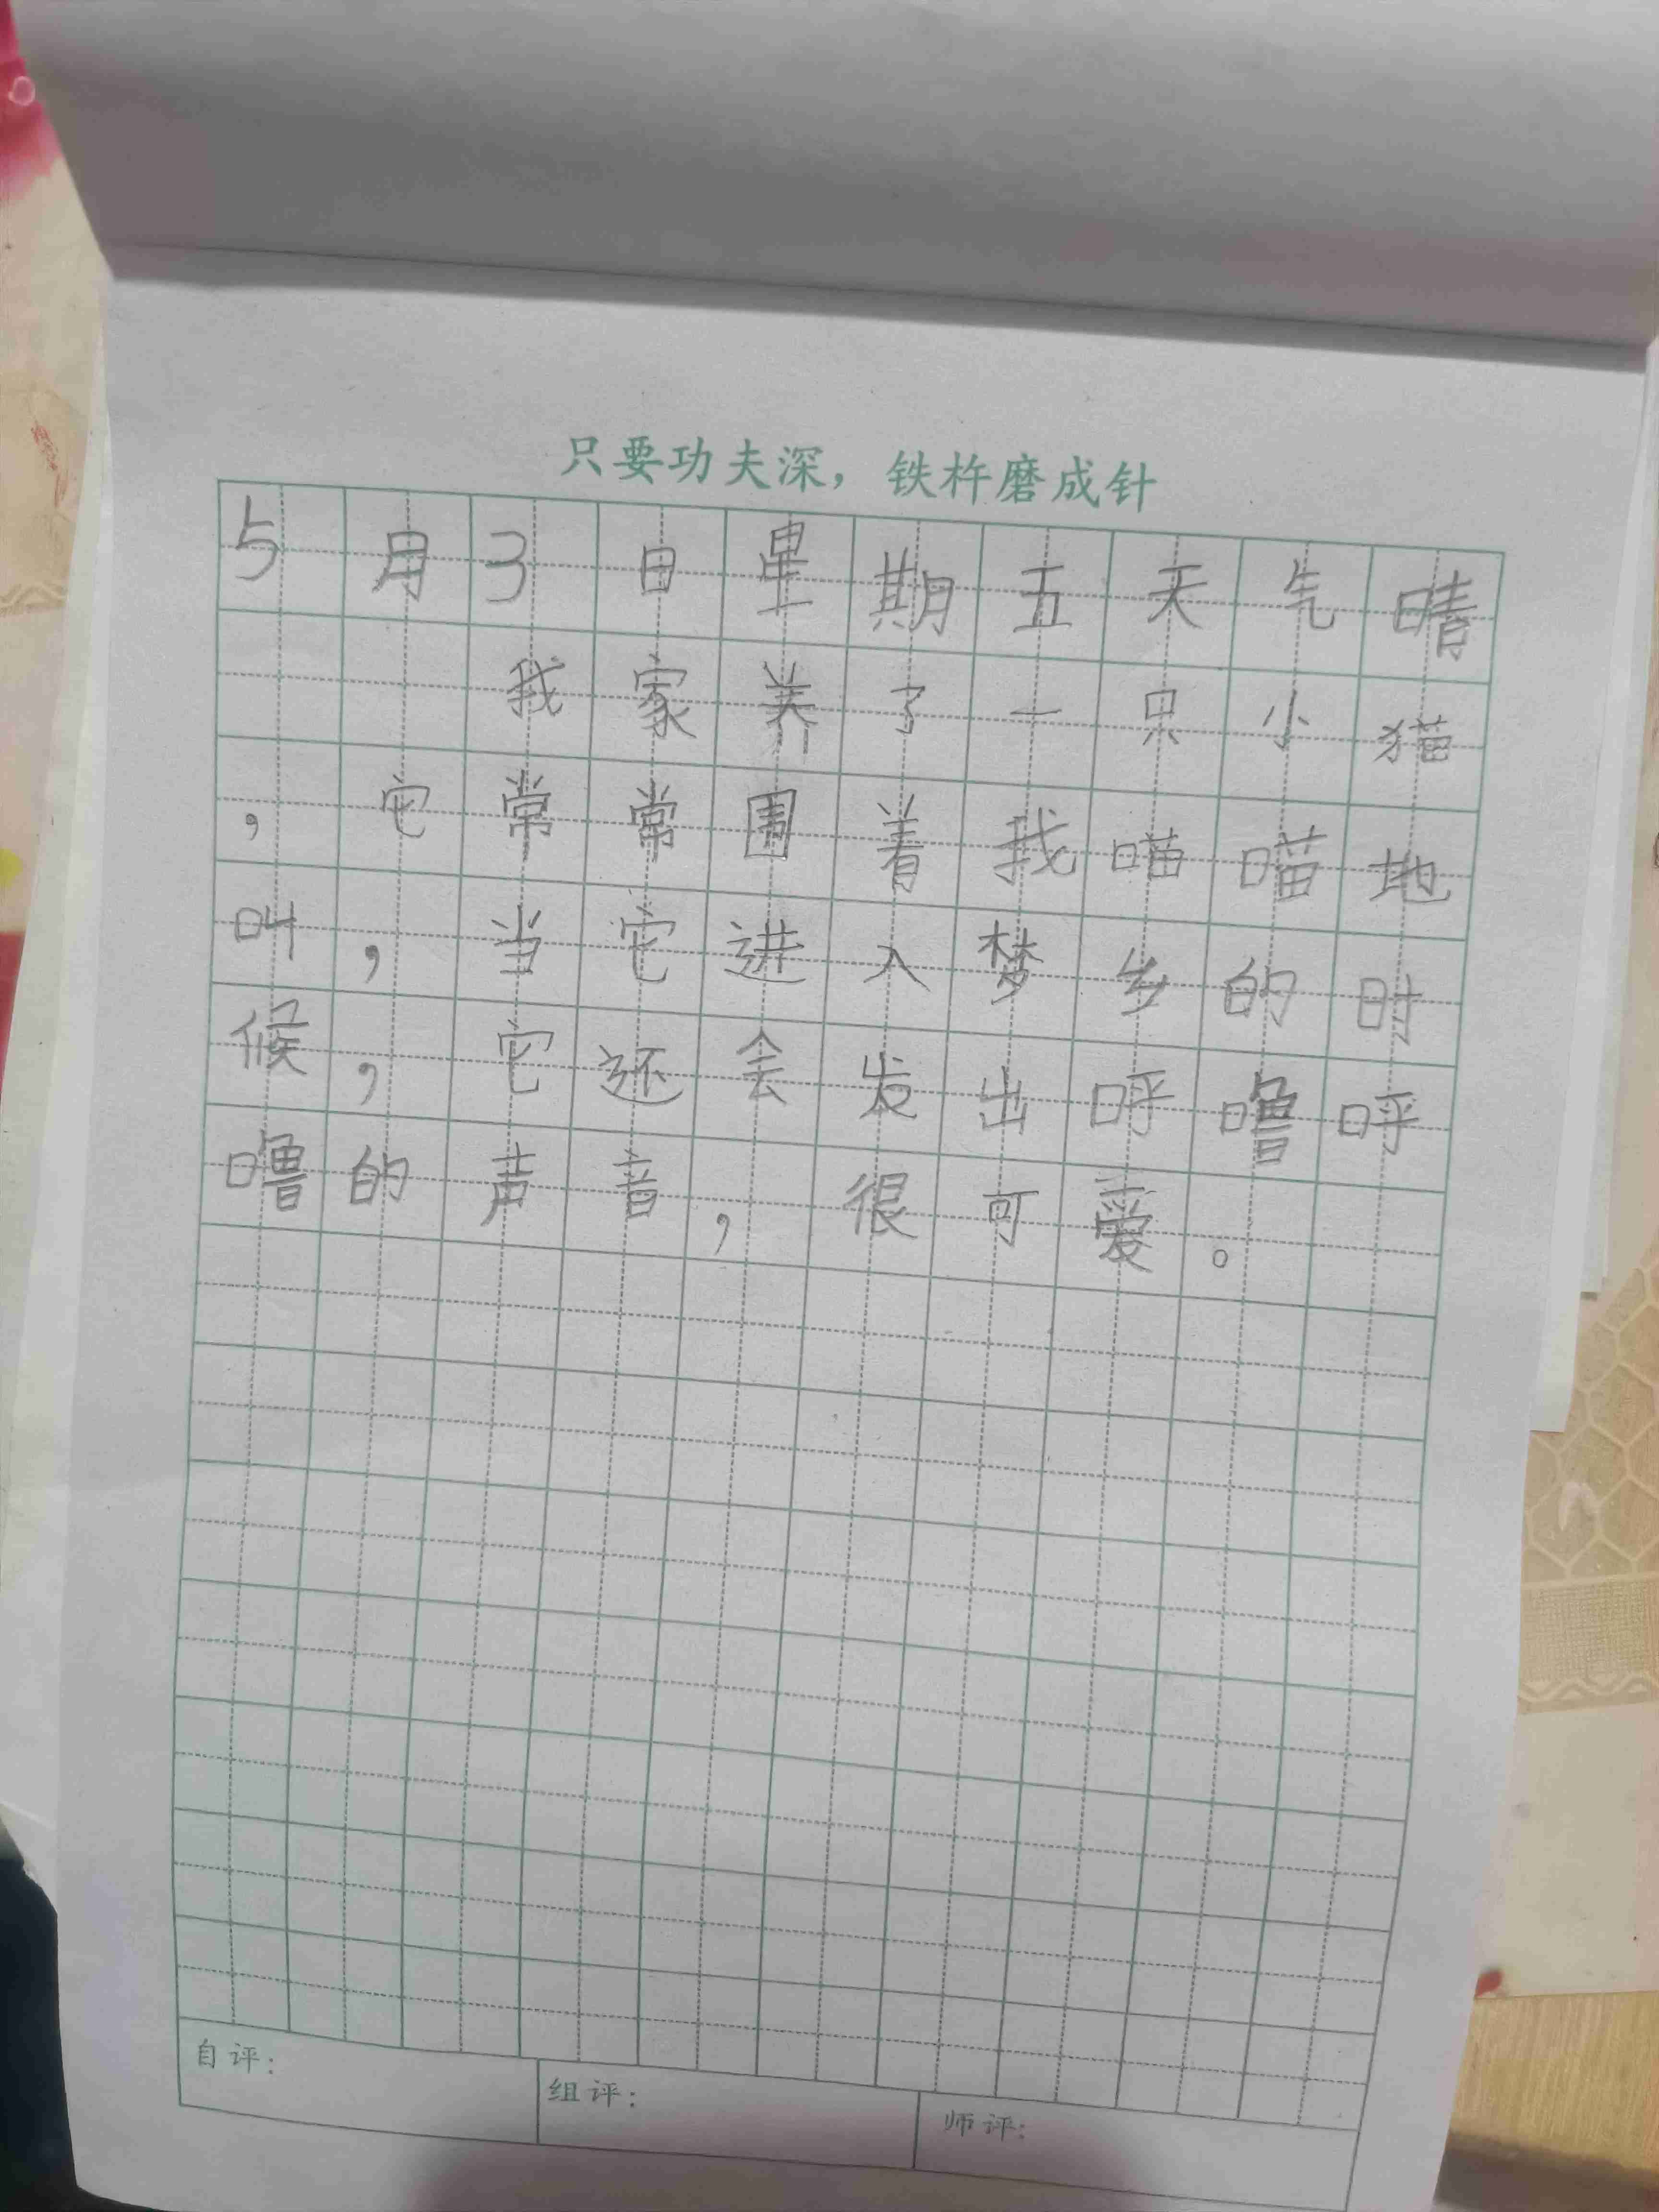 只要功夫深，铁杵磨成针
5月3日星期五天气晴
我家养了一只小猫
，它常常围着我喵喵地
叫，当它进入梦乡的时
候，它还会发出呼噜呼
噜的声音，很可爱。
自评：
组评：
师评：